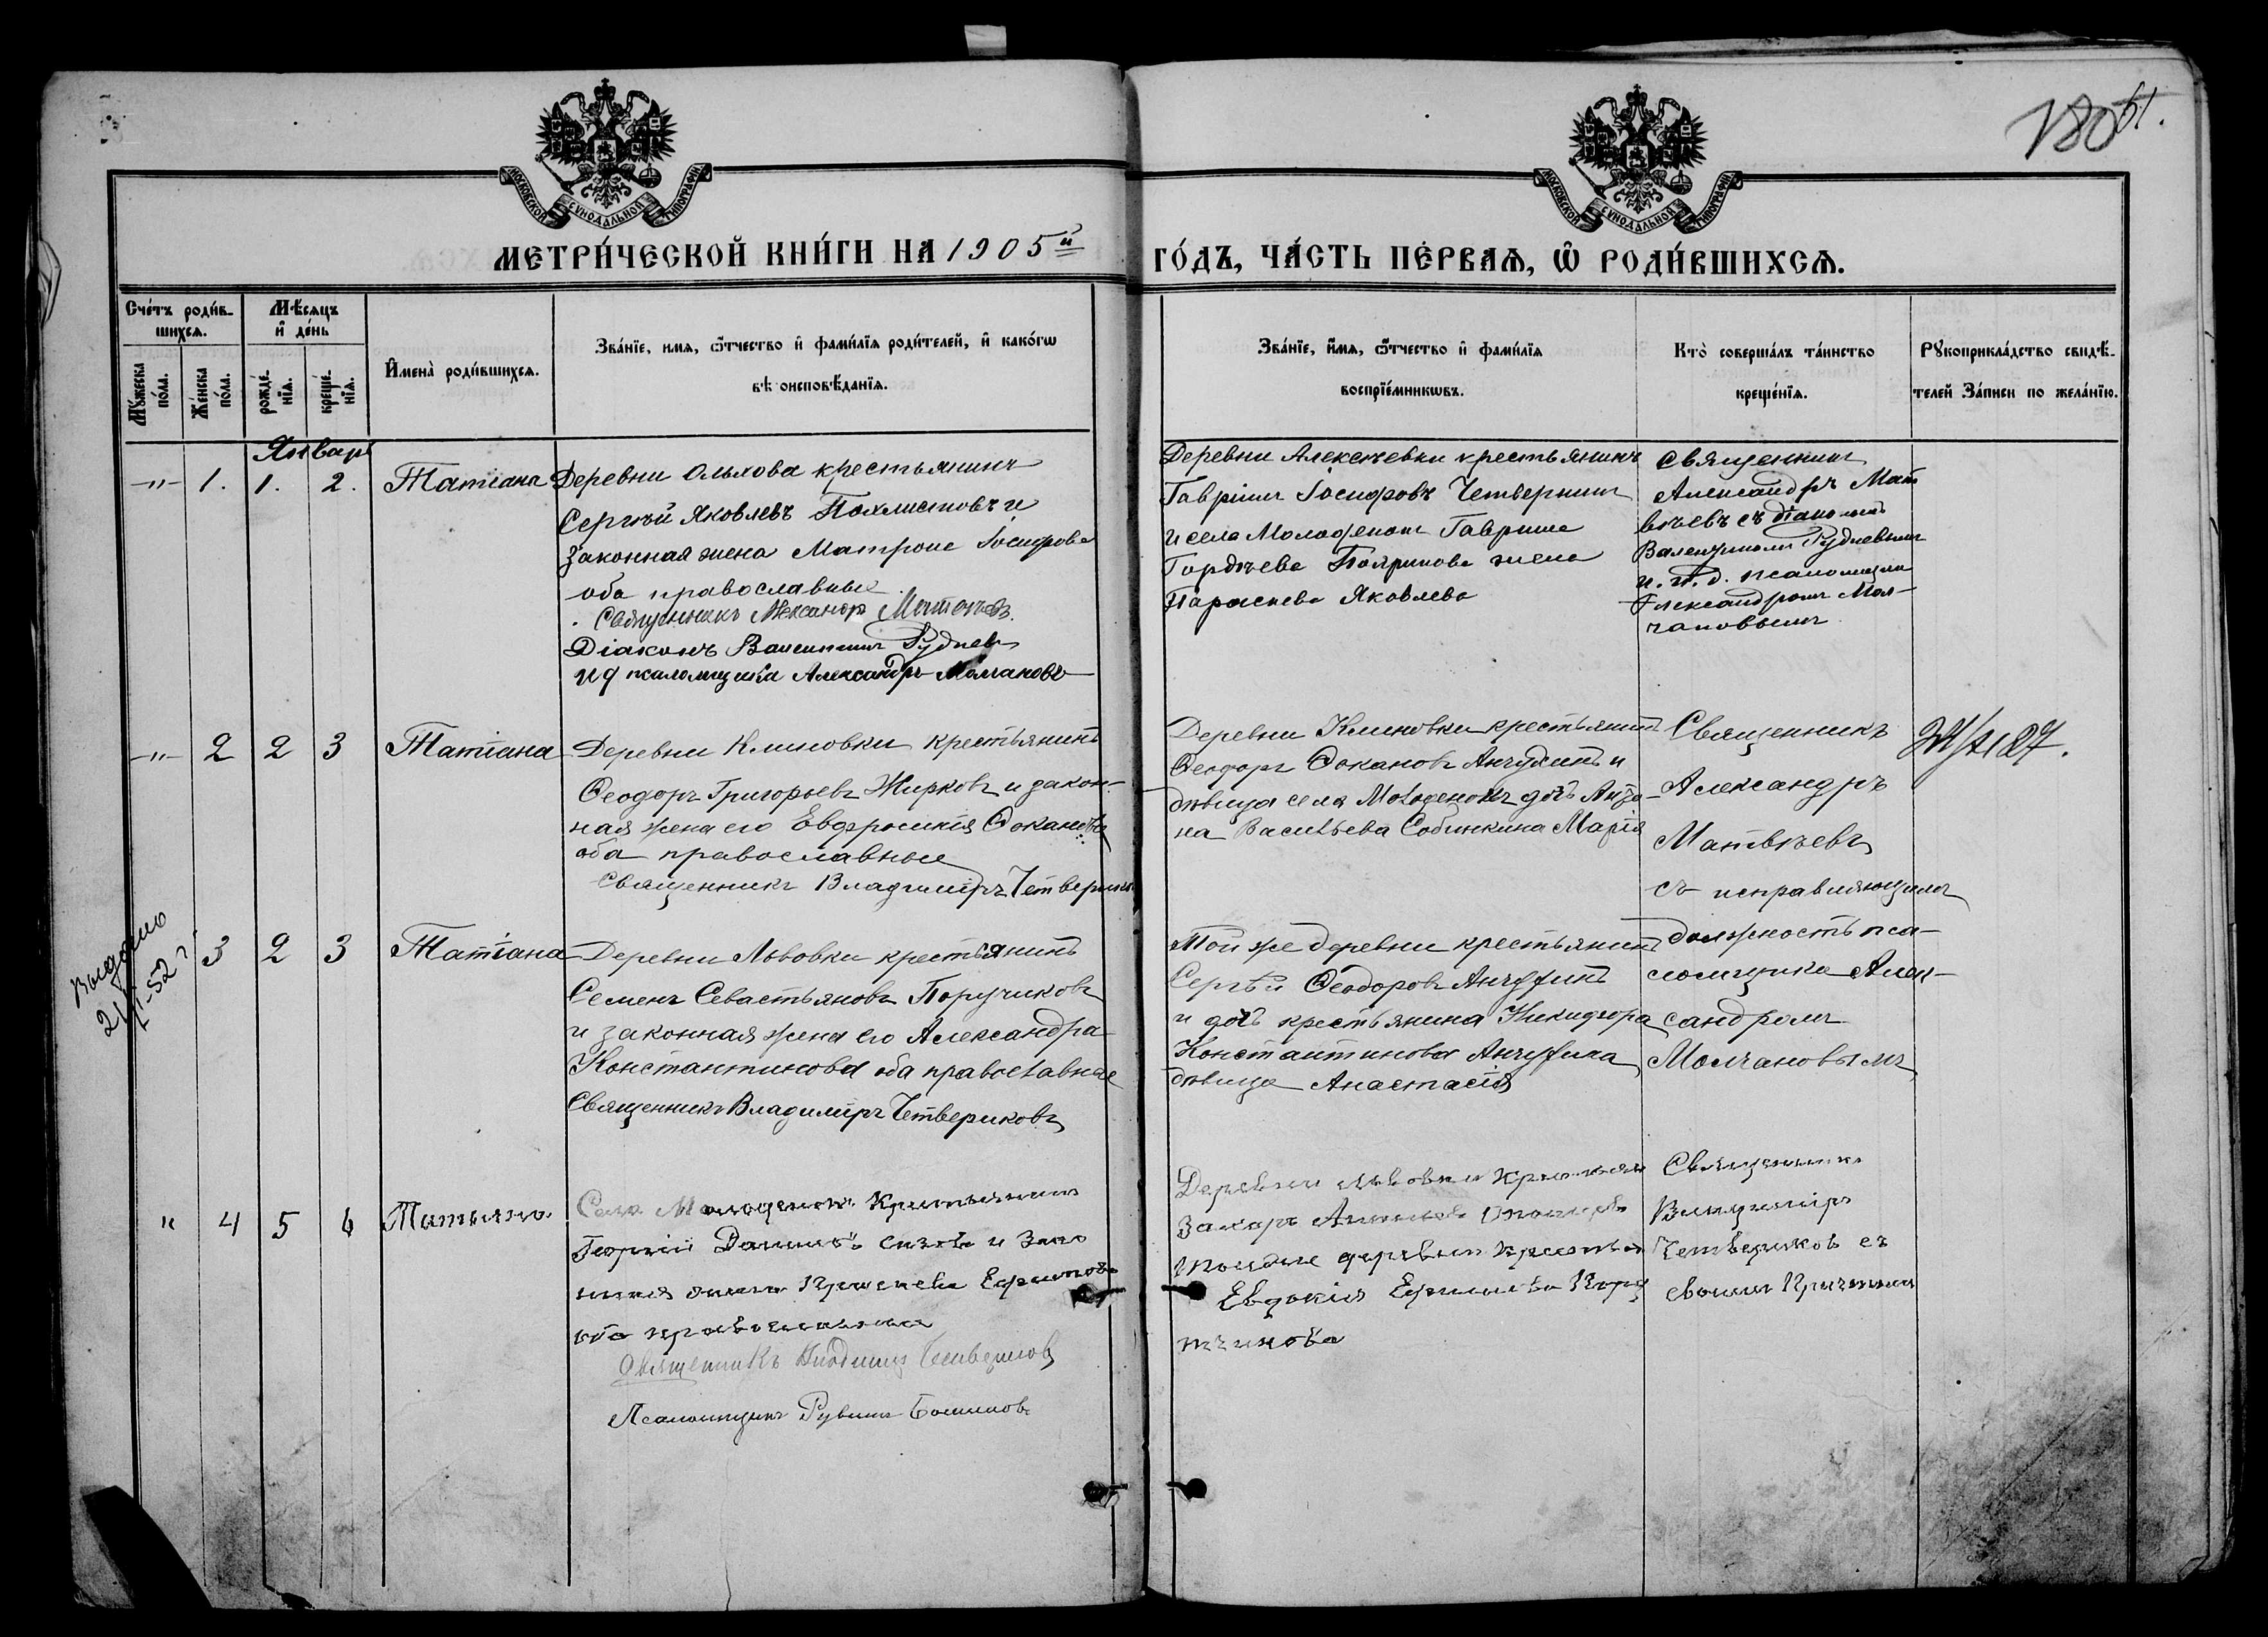 180 51.
МОСКОВСКОЙ СУНОДАЛЬНОЙ ТИПОГРАФІИ
МОСКОВСКОЙ СУНОДАЛЬНОЙ ТИПОГРАФІИ
МЕТРИ́ЧЕСКОЙ КНИ́ГИ НА 1905й
ГО́ДЪ, ЧА́СТЬ ПЕ́РВАѦ, Ѡ҆ РОДИ́ВШИХСѦ.
Сче́тъ роди́в-
шихсѧ.
Мѣ́сѧцъ
и҆ де́нь
Мꙋ́жеска
по́ла.
Же́нска
по́ла.
рожде́-
нїѧ.
креще́-
нїѧ.
И҆мена̀ роди́вшихсѧ.
Зва́нїе, имѧ, ѻ҆́тчество и҆ фами́лїѧ роди́телей, и҆ како́гѡ
вѣ̀оисповѣ́данїѧ.
Зва́нїе, и҆́мѧ, ѻ҆́тчество и҆ фами́лїѧ
воспрїе́мникѡвъ.
Кто̀ соверша́лъ та́инство
креще́нїѧ.
Рꙋкоприкла́дство свидѣ́-
телей За́писи по жела́нїю.
Январь
-"- 1. 1. 2. Татіана
Деревни Ольхова крестьянинъ
Сергѣй Яковлевъ Похлистовъ и
законная жена Матрона Іосифова
оба православные
Священникъ Александръ Матвѣевъ.
Діаконъ Валентинъ Руднев
ид псаломщика Александръ Молчановъ
Деревни Алексѣевки крестьянинъ
Гавріилъ Іосифовъ Четвернин
и села Молоденокъ Гавріила
Гордѣева жена
Параскева Яковлева
Священник
Александръ Мат
вѣевъ съ діаконом
Валентиномъ Рудневымъ
и. д. псаломщика
Александромъ Мол-
чановымъ
-"- 2 2 3 Татіана
Деревни Климовки крестьянинъ
Ѳеодоръ Григорьевъ Жирковъ и закон-
ная жена его Евфросинія Ѳоканова
оба православные
Священникъ Владиміръ Четвериков
Деревни Климовки крестьянинъ
Ѳеодоръ Ѳокановъ Анчуфинъ и
дѣвица села Молоденокъ дочь Анто-
на Васильева Собинкина Марія
Священникъ
Александръ
Матвѣевъ
съ исправляющимъ
должность пса-
ломщика Алек-
сандромъ
Молчановымъ
Выдано
-52 г
3 2 3 Татіана
Деревни Львовки крестьянинъ
Семенъ Севастьяновъ Поручиковъ
и законная жена его Александра
Константинова оба православные
Священникъ Владиміръ Четвериковъ
Той же деревни крестьянинъ
Сергѣй Ѳеодоровъ Анчуфинъ
и дочь крестьянина Никифора
Константинова Анчуфина
дѣвица Анастасія
" 4 5 6 Татьяна
Села Молоденокъ Крестьянинъ
Георгій и Зако
нная жена Параскева
оба православные
Священникъ Владиміръ Четвериковъ
Псаломщикъ
Деревни Львовки Крестьян
Захаръ
тойже деревни Крестья
Евдокія
Священникъ
Владиміръ
Четвериковъ съ
своимъ Причтомъ